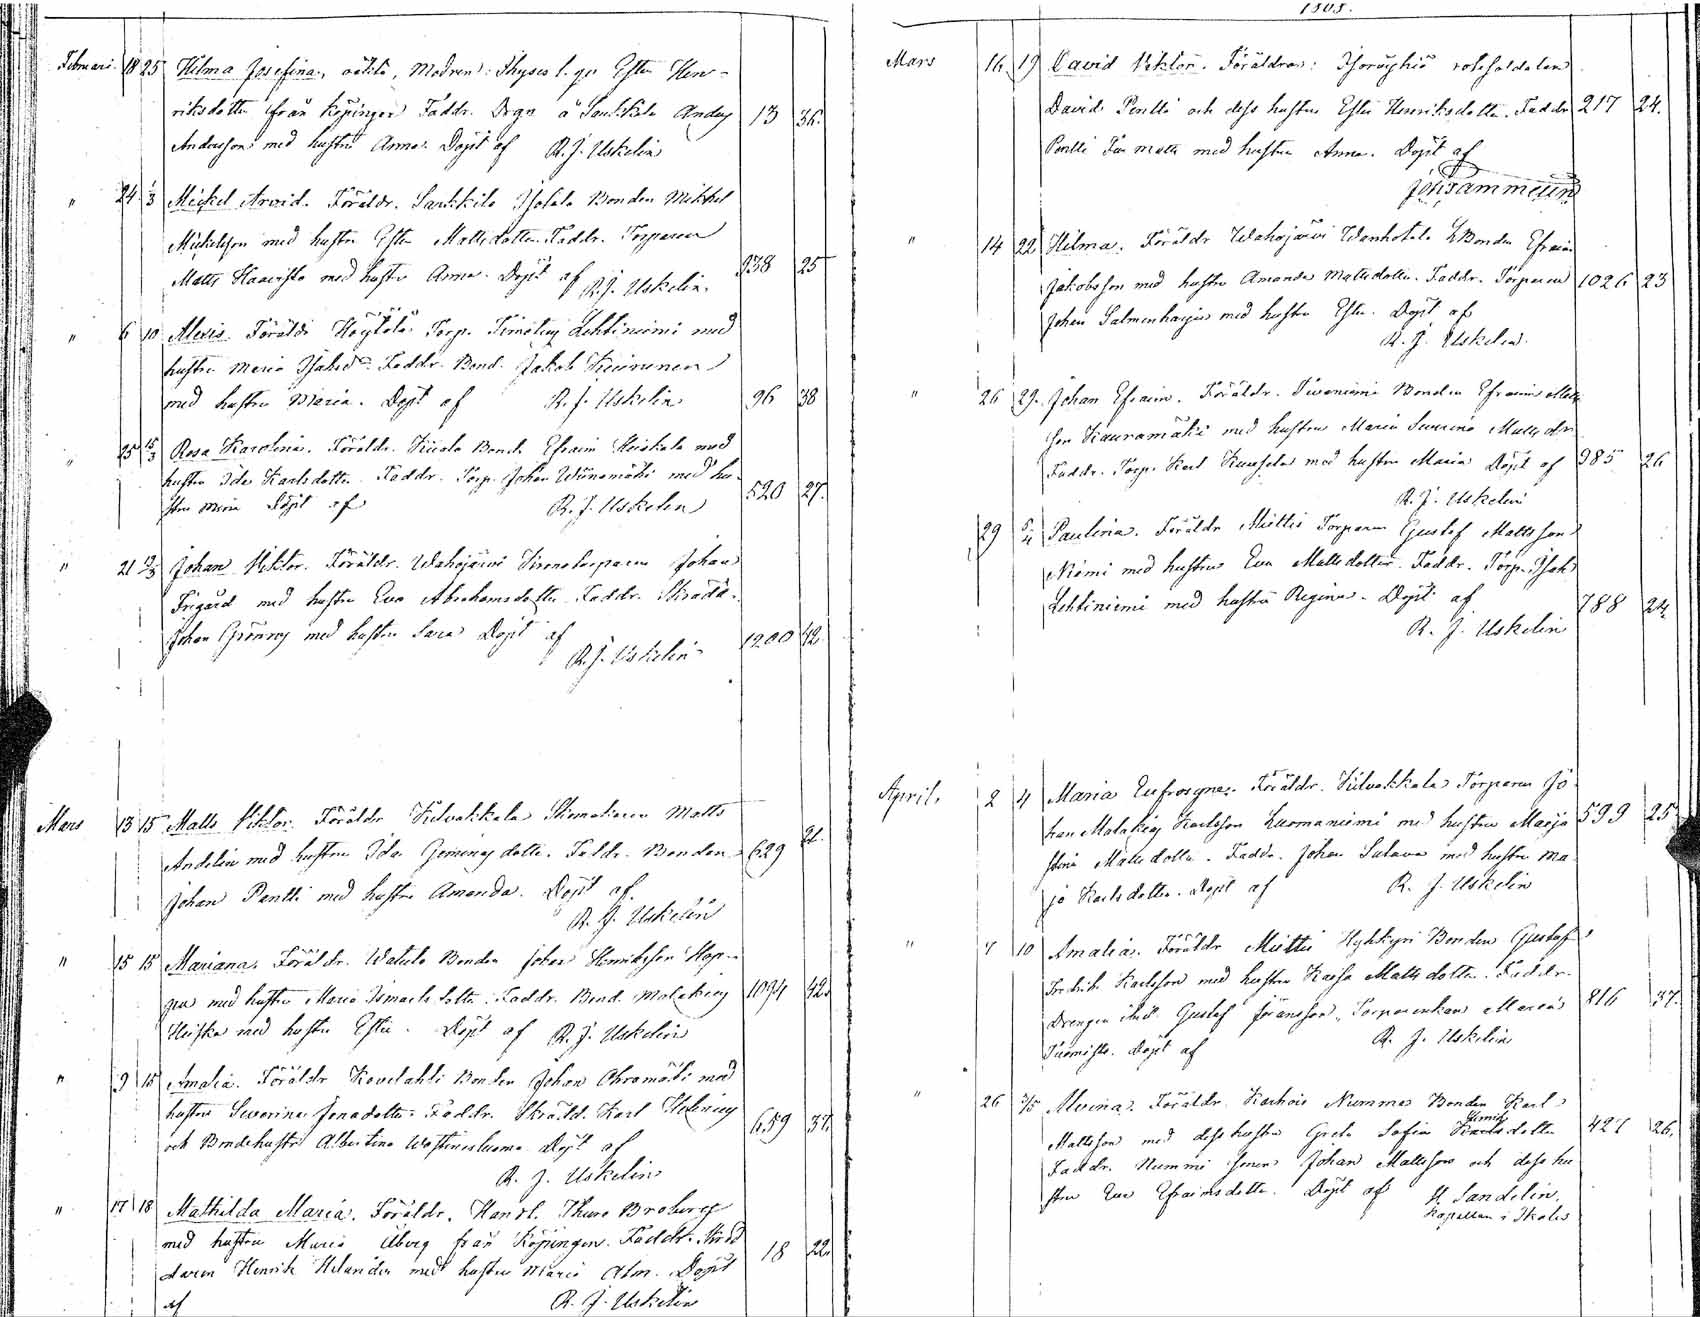 Februari 18 25 Hilma Josefina, oäkta, Modren: Thyses l. qv Ester Hen-
riksdotter från Köpingen Faddr. Drgn å Sarkkila Anders 13 36.
Andersson med hustru Anna. Döpt af R. J. Uskelin
" 24 1/3 Mickel Arvid. Föräldr. Sarkkila Isotalo Bonden Mikkel
Mickelsson med hustru Ester Mattsdotter. Faddr. Torparen
Matts Haavisto med hustru Anna. Döpt af R. J. Uskelin. 938 25
" 6 10 Alexis. Föräldr Torp. Timoteus Lehtiniemi med
hustru Maria Isaksdr Faddr. Bond. Jakob
med hustru Maria. Döpt af R. J. Uskelin 96 38
" 25 15/3 Rosa Karolina. Föräldr. Bond. Efraim Heiskala med
hustru Ida Karlsdotter. Faddr. Torp. Johan med hu-
stru Maria Döpt af R. J. Uskelin 520 27.
" 21 Johan Viktor. Föräldr. Wahojärvi Torparen Johan
Frigård med hustru Eva Abrahamsdotter Faddr. Skrädd.
Johan Grönroos med hustru Sara Döpt af 1200 42.
R. J. Uskelin
Mars 13 15 Matts Viktor. Föräldr Kilvakkala Skomakaren Matts
Andelin med hustru Ida dotter. Faddr. Bonden 629 21.
Johan Pentti med hustru Amanda. Döpt af
R. J. Uskelin
" 15 15 Mariana. Föräldr. Watula Bonden Johan Henriksson Hap-
pu med hustru Maria Ismaels dotter. Faddr. Bond. Malakias 1094 42.
Heiska med hustru Ester. Döpt af R. J. Uskelin
" 9 15 Amalia. Föräldr Kovelahti Bonden Johan Ohramäki med
hustru Severina Jonadotter. Faddr. Skrädd. Karl Helenius 659 37.
och Bondehustr Albertina Döpt af
R. J. Uskelin
" 17 18 Mathilda Maria. Föräldr. Handl. Thure Broberg
med hustru Maria Åberg från Köpingen. Faddr.
daren Henrik Helander med hustru Maria Alm. Döpt 18 22.
af R. J. Uskelin
Mars 16 19 David Viktor. Föräldrar: rotesoldaten
David Pentti och dess hustru Ester Henriksdotter. Faddr 217 24.
Pentti Far Matts med hustru Anna. Döpt af
Joh. Sammelin
" 14 22 Hilma. Föräldr Wahojärvi Wanhatalo Bonden Efraim
Jakobsson med hustru Amanda Mattsdotter. Faddr. Torparen 1026 23
Johan Salmenharju med hustru Ester. Döpt af
R. J. Uskelin.
" 26 29. Johan Efraim. Föräldr. Bonden Efraim Matts
son Kauramäki med hustru Maria Severina Matts dr.
Faddr. Torp. Karl med hustru Maria Döpt af 985 26
R. J. Uskelin
29 5/4 Paulina. Föräldr Miettis Torparen Gustaf Mattsson
Niemi med hustru Eva Mattsdotter. Faddr. Torp. Isak
Lehtiniemi med hustru Regina. Döpt af 788 24.
R. J. Uskelin
April. 2 4 Maria Eufrosyne. Föräldr. Kilvakkala Torparen Jo-
han Malakias Karlsson Luomaniemi med hustru Marja 599 25
Stina Mattsdotter. Faddr. Johan Salava med hustru Ma-
ja Karlsdotter. Döpt af R. J. Uskelin
" 7 10 Amalia. Föräldr Miettis Hyhkyri Bonden Gustaf
Fredrik Karlsson med hustru Kajsa Mattsdotter. Faddr.
Drengen Gustaf Göransson, Torparenkan Maria 816 37.
Tuomisto. Döpt af R. J. Uskelin
" 26 3/5 Alvina. Föräldr. Karhois Nummes Bonden Karl
Mattsson med dess hustru Greta Sofia Karlsdotter 427 26.
Faddr. Nummi sonen Johan Mattsson och dess hu
stru Eva Efraimsdotter. Döpt af H. Sandelin.
Kapellan i Ikalis